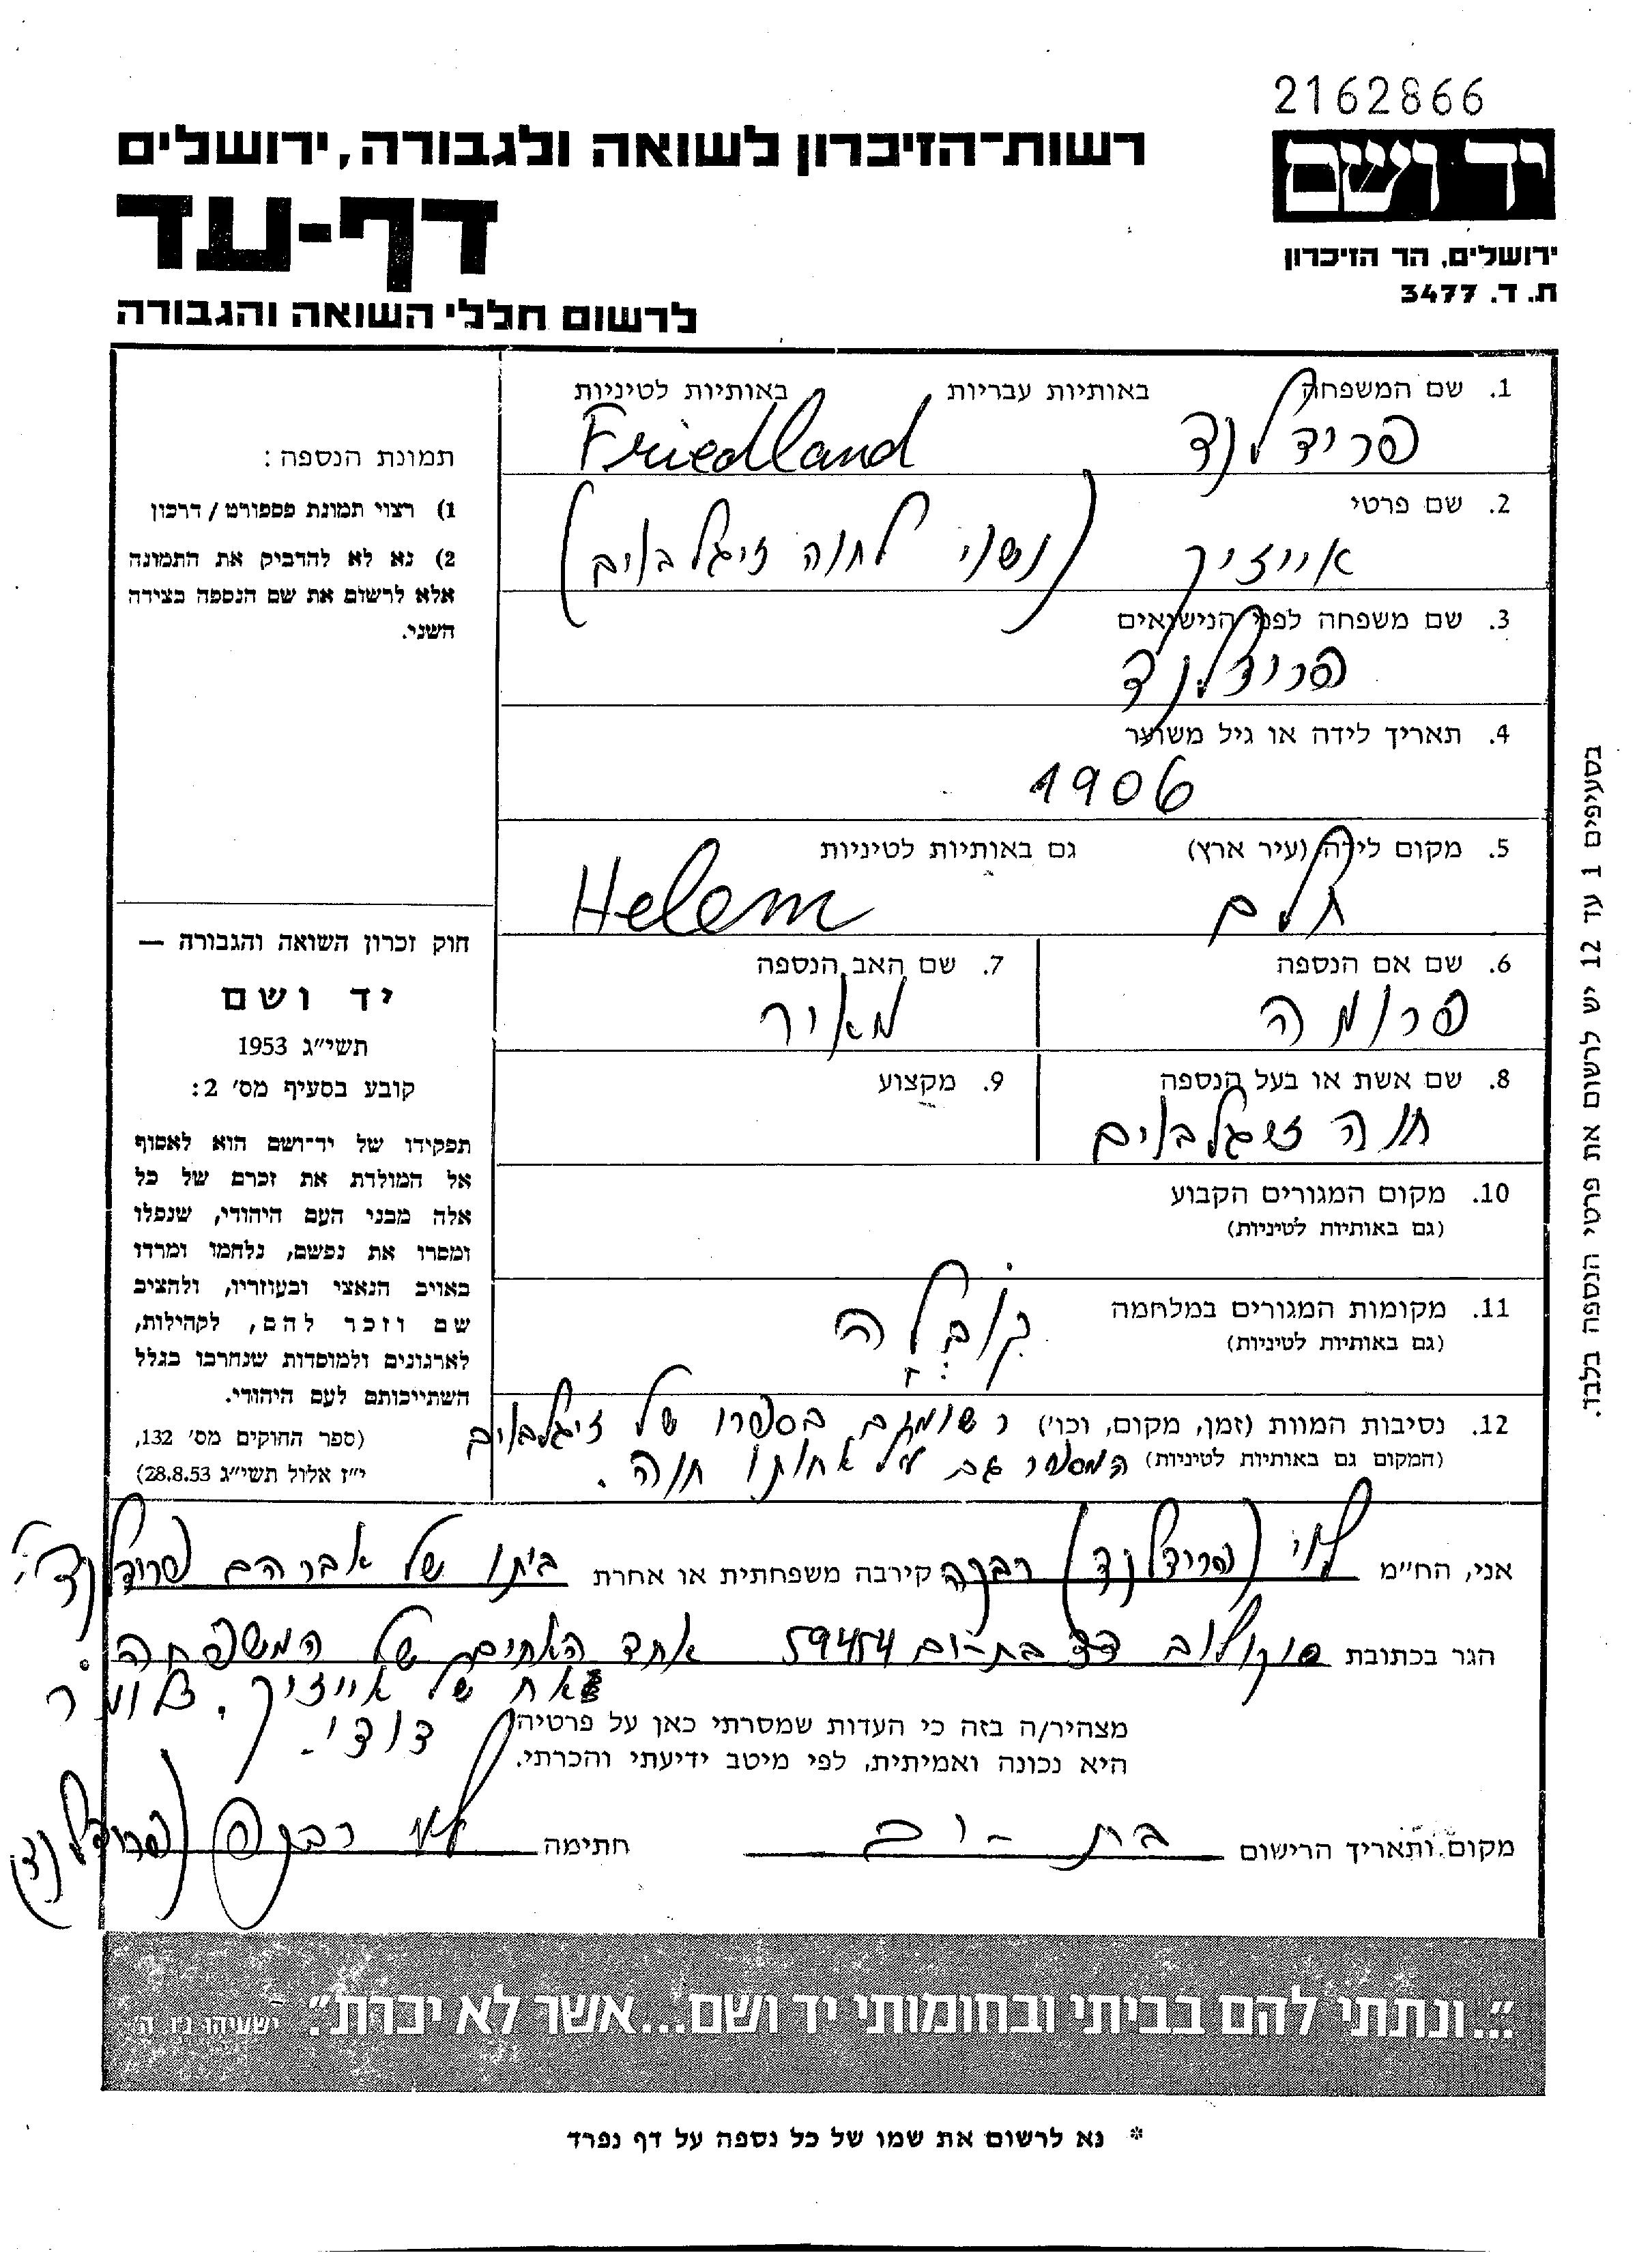 2162866
יד ושם
ירושלים, הר הזיכרון
ת. ד. 3477
רשות־הזיכרון לשואה ולגבורה, ירושלים
דף-עד
לרשום חללי השואה והגבורה
1. שם המשפחה באותיות עבריות באותיות לטיניות
פרידלנד Friedland
2. שם פרטי
אייזיק (נשוי לחנה זיגלבוים)
3. שם משפחה לפני הנישואים
פרידלנד
4. תאריך לידה או גיל משוער
1906
5. מקום לידה (עיר ארץ) גם באותיות לטיניות
חלם Helem
6. שם אם הנספה 7. שם האב הנספה
פרומה מאיר
8. שם אשת או בעל הנספה 9. מקצוע
חנה זיגלבוים
10. מקום המגורים הקבוע
(גם באותיות לטיניות)
11. מקומות המגורים במלחמה
(גם באותיות לטיניות)
12. נסיבות המוות (זמן, מקום, וכו') בספרו של זיגלבוים
(המקום גם באותיות לטיניות) המספר גם על אחותו חנה.
תמונת הנספה:
1) רצוי תמונת פספורט / דרכון
2) נא לא להדביק את התמונה
אלא לרשום את שם הנספה בצידה
השני.
חוק זכרון השואה והגבורה —
יד ושם
תשי"ג 1953
קובע בסעיף מס' 2:
תפקידו של יד־ושם הוא לאסוף
אל המולדת את זכרם של כל
אלה מבני העם היהודי, שנפלו
ומסרו את נפשם, נלחמו ומרדו
באויב הנאצי ובעוזריו, ולהציב
שם וזכר להם, לקהילות,
לארגונים ולמוסדות שנחרבו בגלל
השתייכותם לעם היהודי.
(ספר החוקים מס' 132,
י"ז אלול תשי"ג 28.8.53)
בסעיפים 1 עד 12 יש לרשום את פרטי הנספה בלבד.
אני, הח"מ לוי (פרידלנד) רבקה קירבה משפחתית או אחרת ביתו של אברהם פרידלנד
הגר בכתובת סוקולוב 33 בת-ים 59454 אחד האחים של המשפחה.
אח של אייזיק. כלומר
דודי.
מצהיר/ה בזה כי העדות שמסרתי כאן על פרטיה
היא נכונה ואמיתית, לפי מיטב ידיעתי והכרתי.
מקום ותאריך הרישום בת-ים חתימה לוי רבקה (פרידלנד)
"...ונתתי להם בביתי ובחומותי יד ושם...אשר לא יכרת". ישעיהו נ"ו, ה'
* נא לרשום את שמו של כל נספה על דף נפרד